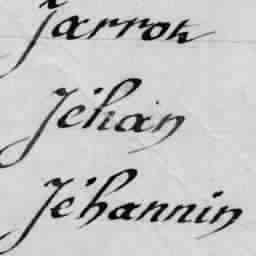 Jarrok
Jéhan
Jéhannin